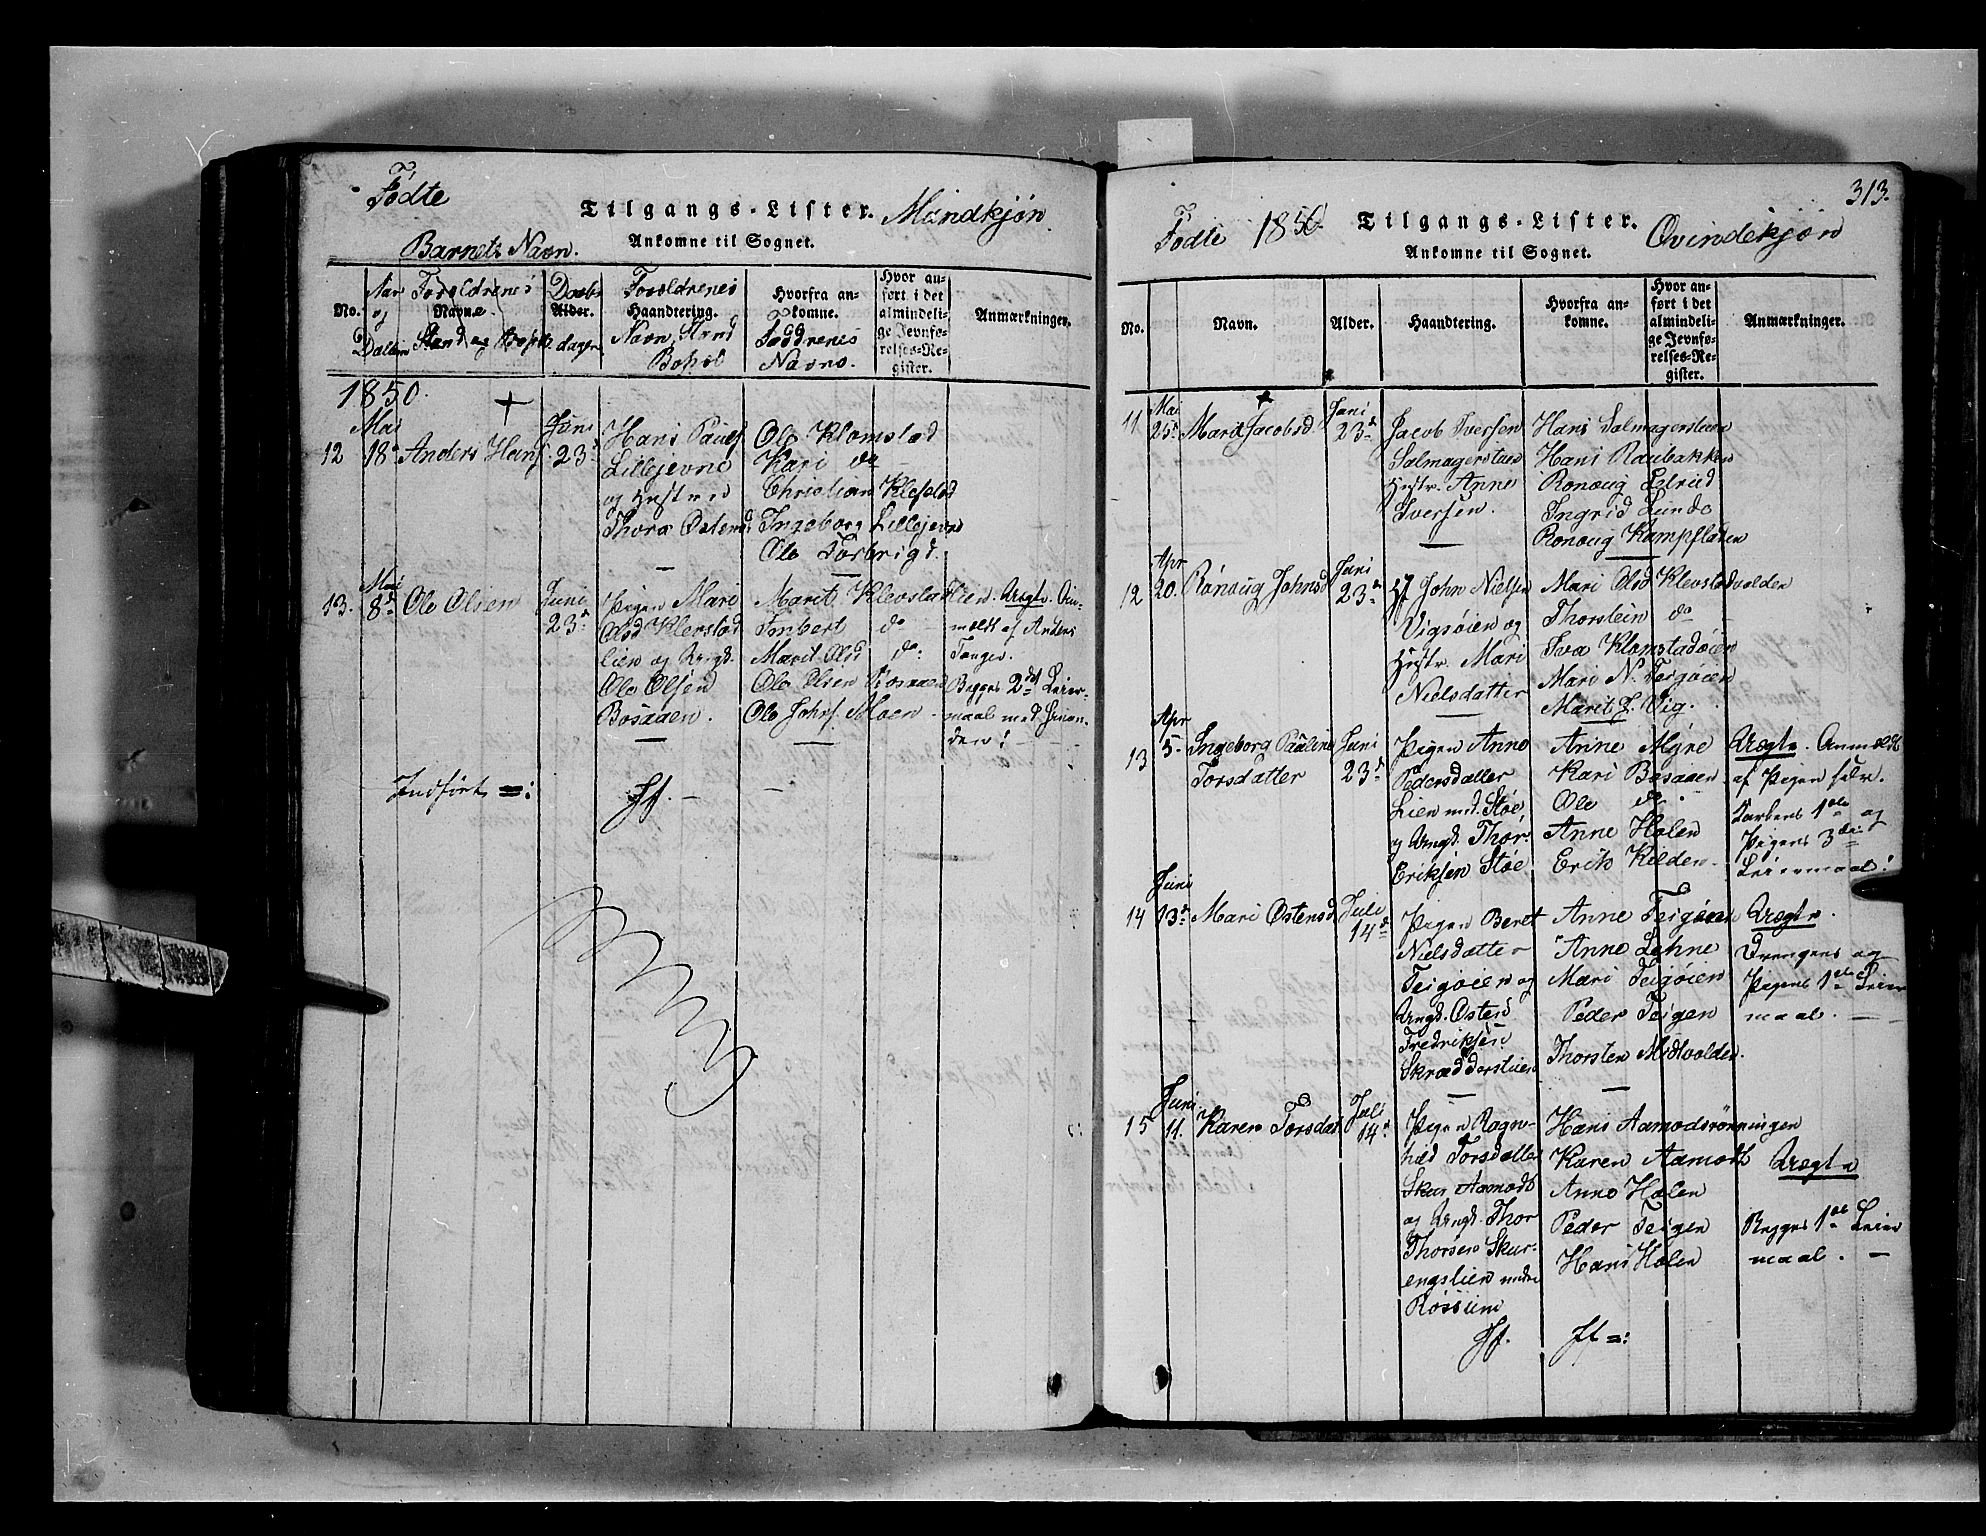 Fødte
Tilgangs-Lister. Mandkjøn.
Barnets Navn. Ankomne til Sognet.
No. Aar og Datum
Forældrenes Navne. Stand og Bopæl
Daabs Alder. dagen
Forældrenes Haandtering. Navn, Stand Bopæl
Hvorfra an-
komne.
Faddrenes
Navne.
Hvor an-
ført i det
almindeli-
ge Jevnfø-
relses-Re-
gister.
Anmærkninger.
1850.
12 Mai 18de Anders Hans.
Juni 23de
Hans Pauls.
Lillejevne
og Hustrue
Thora Østensd.
Ole Klomstad
Kari do
Christian Klefstad
Ingeborg Lillejevne
Ole Torbrigd.
13. Mai 8de Ole Olsen
Juni 23de
Pigen Mari
Olsd Klevstad
lien og Ungk.
Ole Olsen
Bosaaen.
Marit Klevstadlien.
Imbert do
Marit Olsd do:
Ole Olsen Bosaaen
Ole Johns. Moen.
Uægte. An-
meldt af Anders
Tanger.
Begges 2det Leier-
maal med hinan-
den!
Indført =: Hf.
313.
Fødte 1850. Tilgangs-Lister. Qvindekjøn
Ankomne til Sognet.
No.
Navn.
Alder.
Haandtering.
Hvorfra an-
komne.
Hvor an-
ført i det
almindeli-
ge Jevnfø-
relses-Re-
gister.
Anmærkninger.
11 Mai 25de Marit Jacobsd.
Juni 23de
Jacob Iversen
Salmagerstuen
Hustr. Anne
Iversen.
Hans Salmagerstuen
Hans Raubakken
Ronoug Eelrud
Ingrid Lunde
Ronoug Kampsladen
12 Apr 20. Rønaug Johnsd
Juni 23de
Hf John Nielsen
Vigsøien og
Hustr. Mari
Nielsdatter
Mari Olsd Klevstadvolden
Thorstein do
Iva Klomstadøien
Mari N. Teigøien
Marit J. Vig.
13 Apr 5. Ingeborg Pauline
Torsdatter
Juni 23de
Pigen Anne
Pedersdatter
Lien med. Støe,
og Ungk. Thor
Eriksen Støe
Anne Myre
Kari Bosaaen
Ole do
Anne Holen
Erik Kilden.
Uægte. Anmeldt
af Pigen selv.
Karlens 1ste og
Pigens 3die
Leiermaal!
14 Juni 13de Mari Østensd.
Juli 14de
Pigen Beret
Nielsdatter
Teigøien og
Ungk. Østen
Fredriksen
Skrædderstuen
Anne Teigøien
Anne Lehne
Mari Teigøien
Peder Teigen
Thorsten Midtvolden.
Uægte.
Drengens og
Pigens 1ste Leier
maal.
15 Juni 11. Karen Torsdat.
Juli 14de
Pigen Ragn-
hild Torsdatter
Skur Aamodt
og Ungk. Thor
Thorsen Skur-
engslien undr
Røssum
Hans Aamodsrønningen
Karen Aamodt
Anne Holen
Peder Teigen
Hans Holen
Uægte
Begges 1ste Leier
maal.
Hf. Hf =: